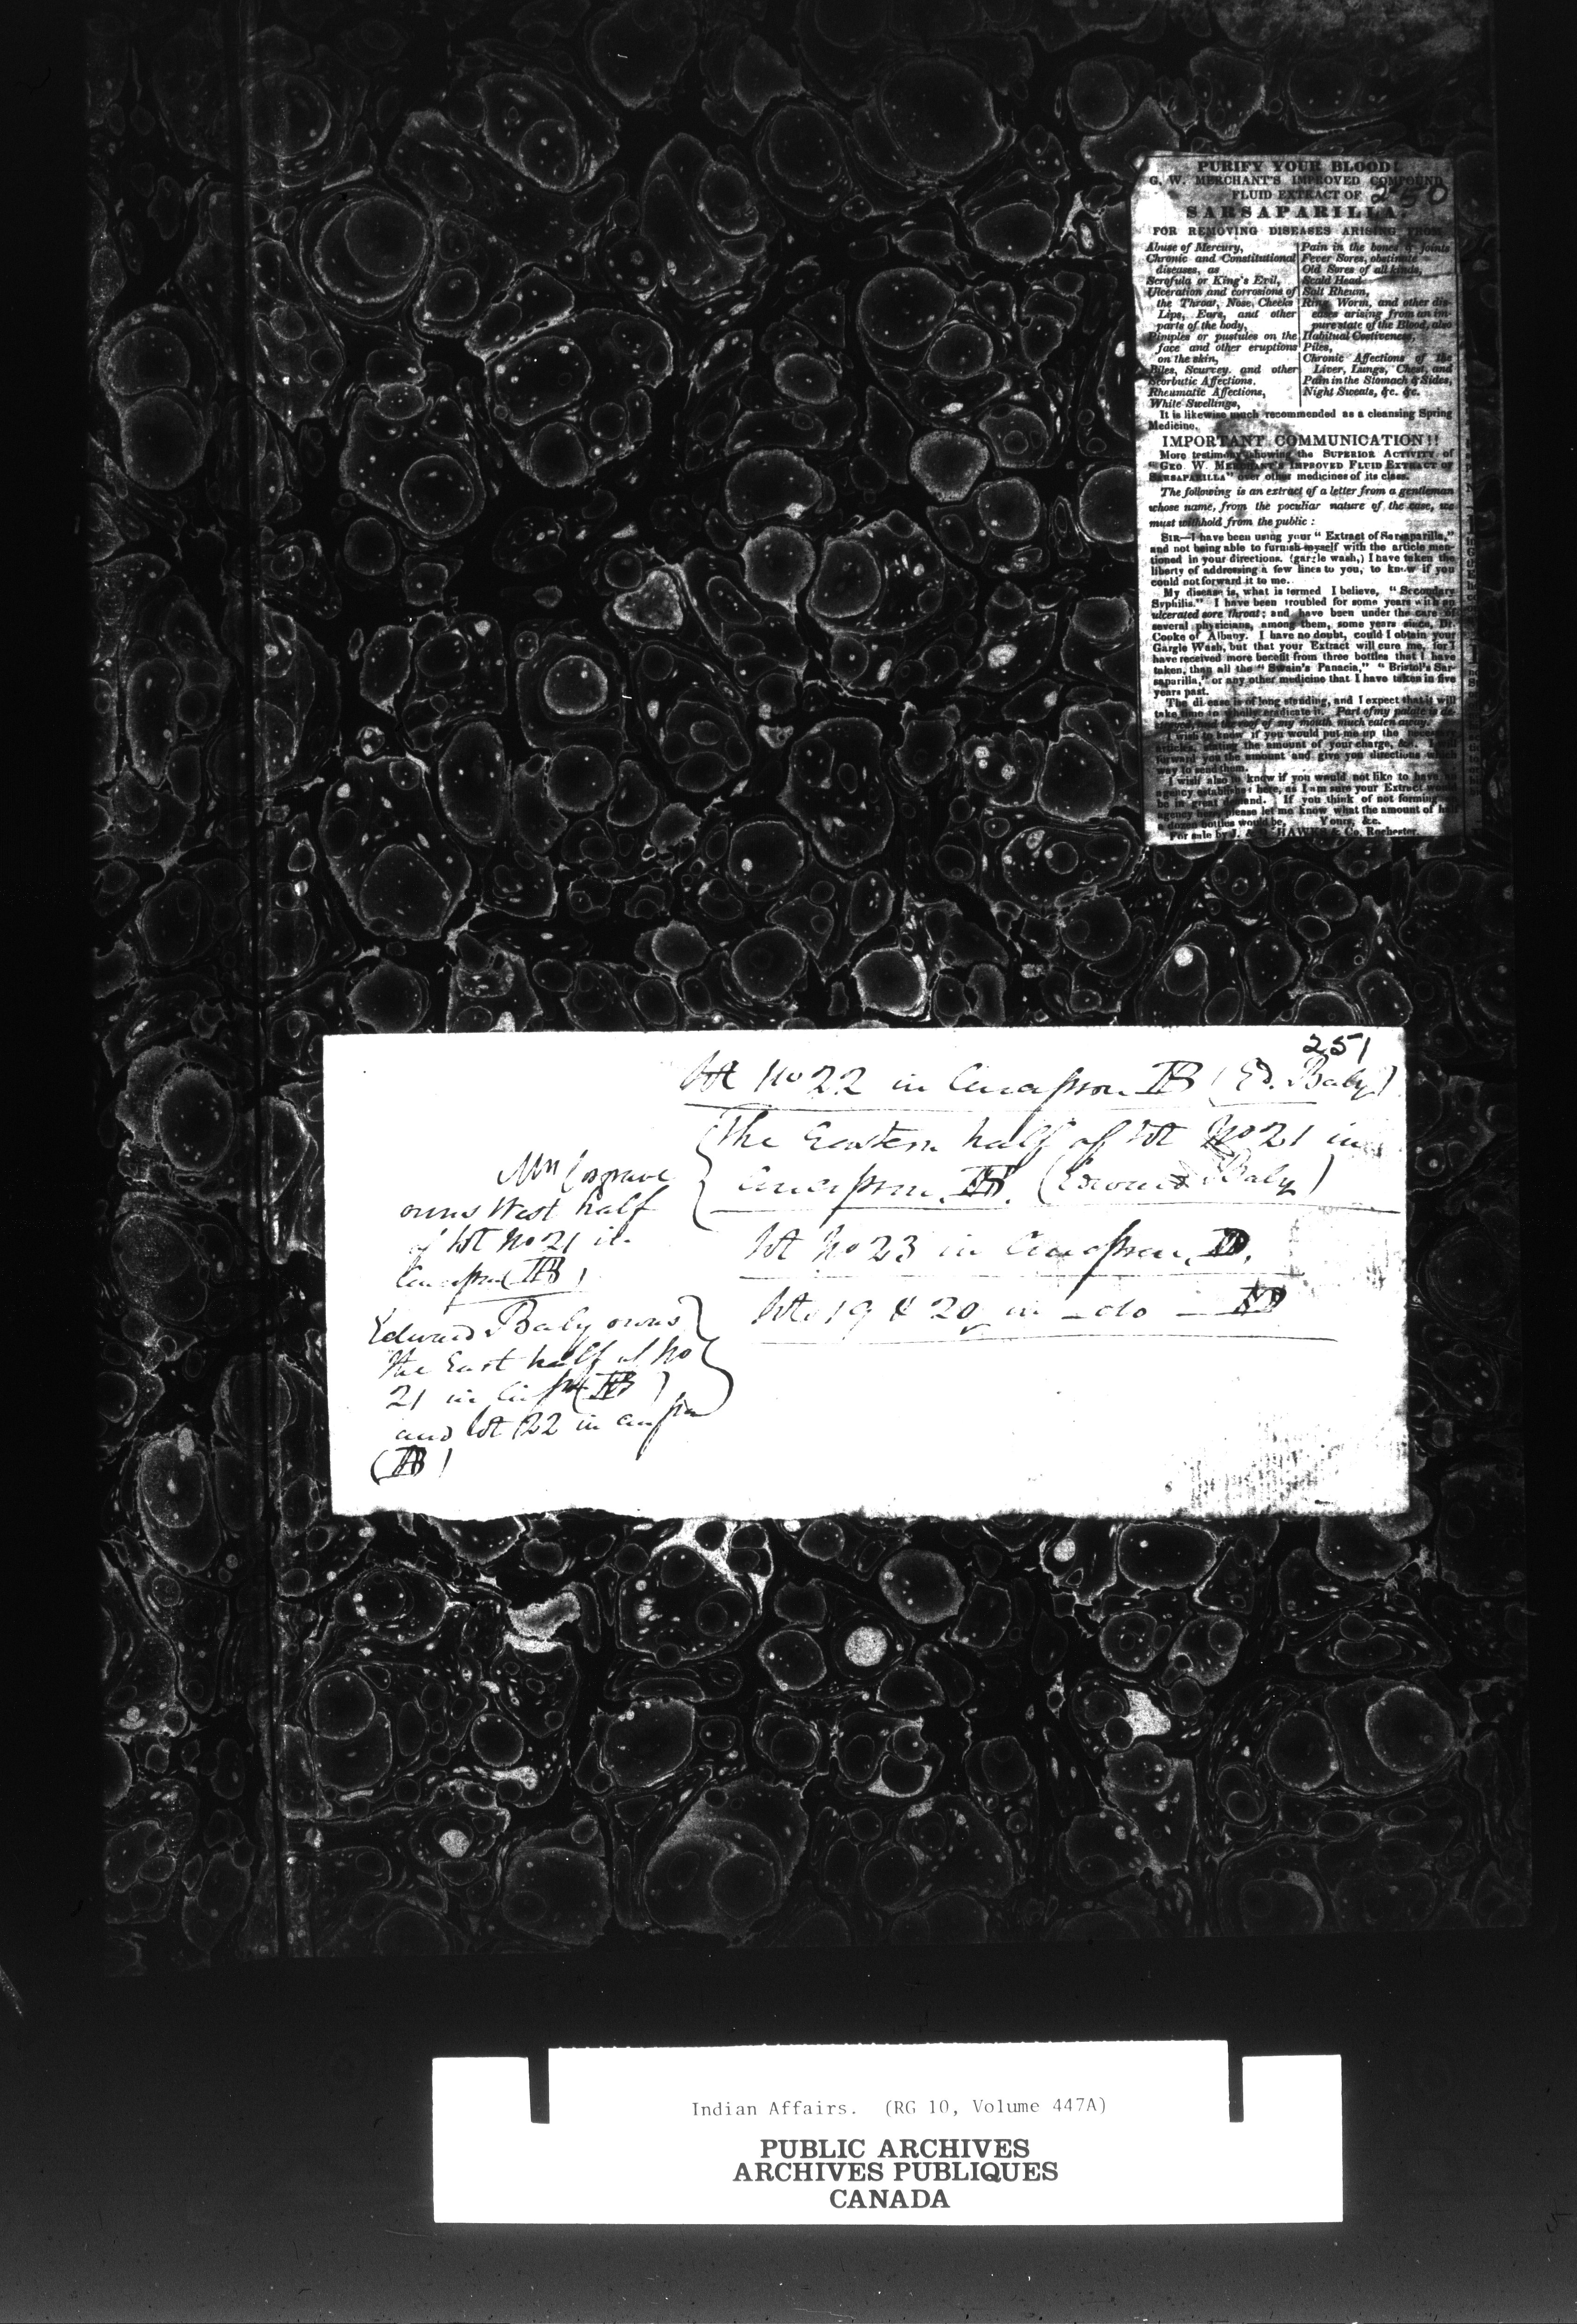 PURIFY YOUR BLOOD!
G. W. MERCHANT'S IMPROVED COMPOUND
FLUID EXTRACT OF 250
SARSAPARILLA.
FOR REMOVING DISEASES ARISING FROM
Abuse of Mercury,
Chronic and Constitutional
diseases, as
Scrofula or King's Evil,
Ulceration and corrosions of
the Throat, Nose, Cheeks
Lips, Ears, and other
parts of the body,
Pimples or pustules on the
face and other eruptions
on the skin,
Biles, Scurvey, and other
Scorbutic Affections.
Rheumatic Affections,
White Swellings,
Pain in the bones & joints
Fever Sores, obstinate
Old Sores of all kinds,
Scald Head
Salt Rheum,
Ring Worm, and other dis-
eases arising from an im-
pure state of the Blood, also
Habitual Costiveness,
Piles,
Chronic Affections of the
Liver, Lungs, Chest, and
Pain in the Stomach & Sides,
Night Sweats, &c. &c.
It is likewise much recommended as a cleansing Spring
Medicine.
IMPORTANT COMMUNICATION!!
More testimony showing the SUPERIOR ACTIVITY of
"GEO. W. MERCHANT'S IMPROVED FLUID EXTRACT OF
SARSAPARILLA" over other medicines of its class.
The following is an extract of a letter from a gentleman
whose name, from the peculiar nature of the case, we
must withhold from the public :
SIR—I have been using your "Extract of Sarsaparilla,"
and not being able to furnish myself with the article men-
tioned in your directions. (gargle wash,) I have taken the
liberty of addressing a few lines to you, to know if you
could not forward it to me.
My disease is, what is termed I believe, "Secondary
Syphilis." I have been troubled for some years with an
ulcerated sore throat; and have been under the care of
several physicians, among them, some years since, Dr.
Cooke of Albany. I have no doubt, could I obtain your
Gargle Wash, but that your Extract will cure me, for I
have received more benefit from three bottles that I have
taken, than all the "Swain's Panacia," "Bristol's Sar-
saparilla," or any other medicine that I have taken in five
years past.
The disease is of long standing, and I expect that it will
take time to wholly eradicate it. Part of my palate is de-
stroyed, and the roof of my mouth much eaten away.
I wish to know if you would put me up the necessary
articles, stating the amount of your charge, &c. I will
forward you the amount and give you directions which
way to send them.
I wish also to know if you would not like to have an
agency established here, as I am sure your Extract would
be in great demand. If you think of not forming an
agency here, please let me know what the amount of half
a dozen bottles would be. Yours, &c.
For sale by J. HAWKS & Co. Rochester.
251
Lot No 22 in Concession (Ed. Baby)
The Eastern half of Lot No 21 in
Concession (Edward Baby)
Lot No 23 in Concession
Lots 19 & 20 in - do -
Mrs Cosgrave
owns West half
of lot No 21 in
Concession
Edward Baby owns
the East half of No
21 in
and lot 22 in
Indian Affairs. (RG 10, Volume 447A)
PUBLIC ARCHIVES
ARCHIVES PUBLIQUES
CANADA